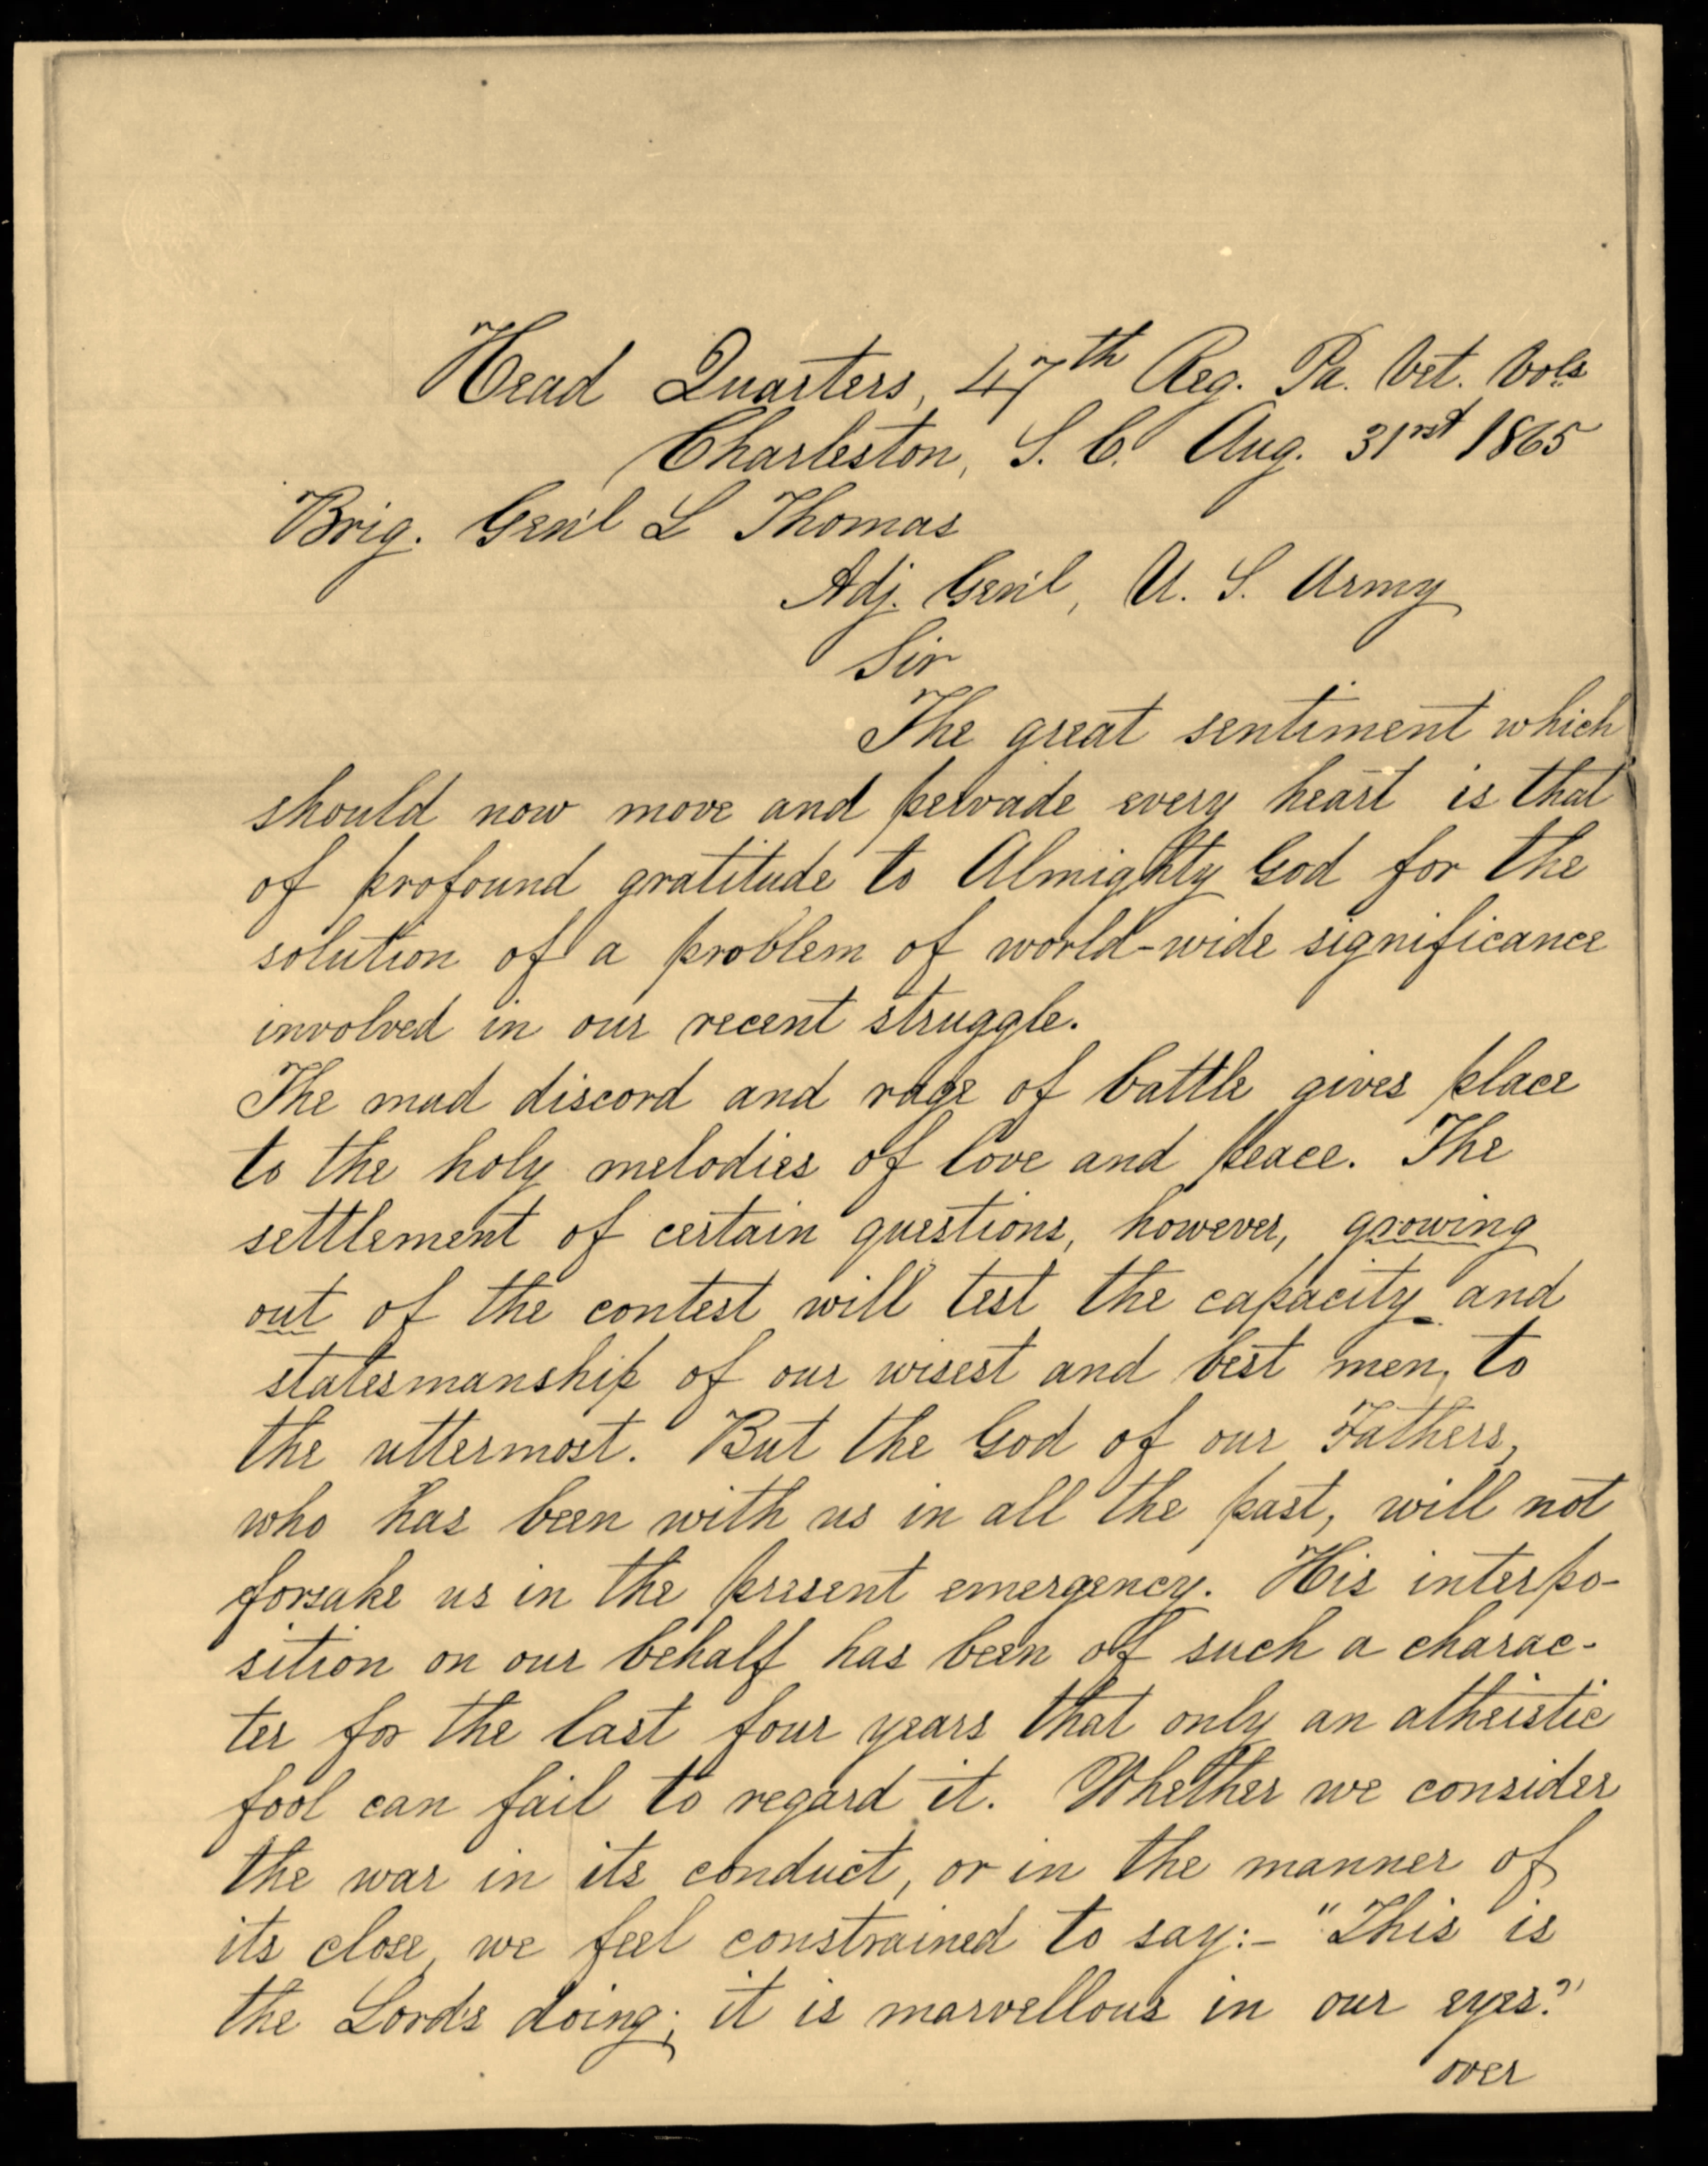 Head Quarters, 47th Reg. Pa. Vet. Vols
Charleston, S. C. Aug. 31rst 1865
Brig. Gen'l L Thomas
Adj. Gen'l, U. S. Army
Sir
The great sentiment which
should now move and pervade every heart is that
of profound gratitude to Almighty God for the
solution of a problem of world-wide significance
involved in our recent struggle.
The mad discord and rage of battle gives place
to the holy melodies of love and peace. The
settlement of certain questions, however, growing
out of the contest will test the capacity and
statesmanship of our wisest and best men, to
the uttermost. But the God of our Fathers,
who has been with us in all the past, will not
forsake us in the present emergency. His interpo-
sition on our behalf has been of such a charac-
ter for the last four years that only an atheistic
fool can fail to regard it. Whether we consider
the war in its conduct, or in the manner of
its close, we feel constrained to say:- "This is
the Lord's doing; it is marvellous in our eyes."
over